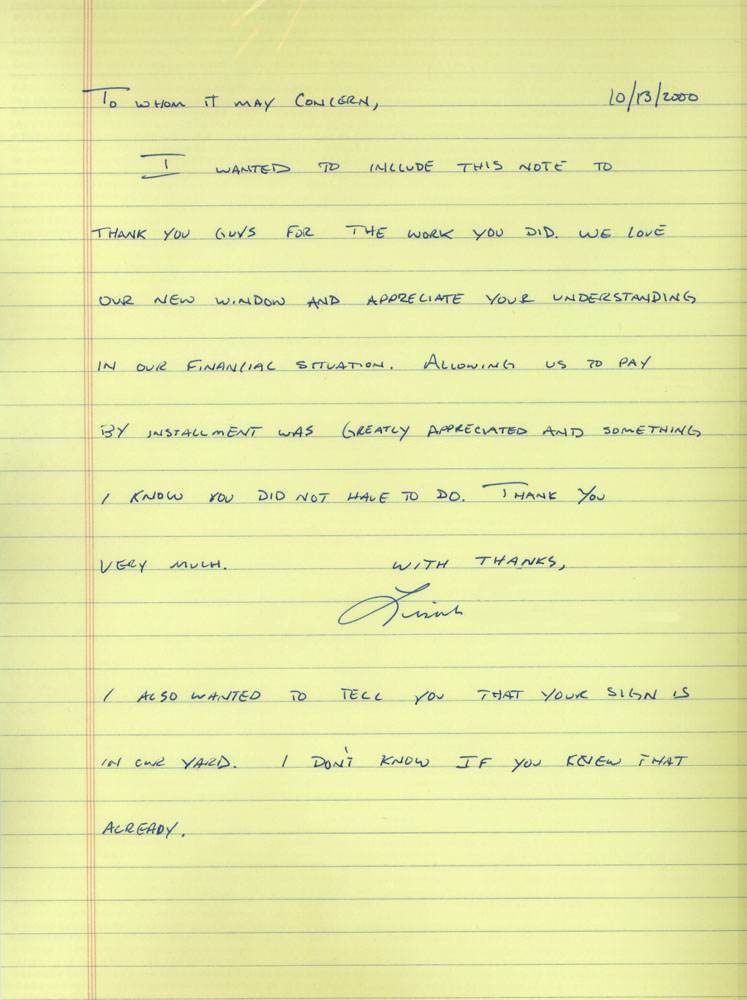 To WHOM IT MAY CONCERN, 10/13/2000
I WANTED TO INCLUDE THIS NOTE TO
THANK YOU GUYS FOR THE WORK YOU DID. WE LOVE
OUR NEW WINDOW AND APPRECIATE YOUR UNDERSTANDING
IN OUR FINANCIAL SITUATION. ALLOWING US TO PAY
BY INSTALLMENT WAS GREATLY APPRECIATED AND SOMETHING
I KNOW YOU DID NOT HAVE TO DO. THANK YOU
VERY MUCH. WITH THANKS,
I ALSO WANTED TO TELL YOU THAT YOUR SIGN IS
IN OUR YARD. I DON'T KNOW IF YOU KNEW THAT
ALREADY.